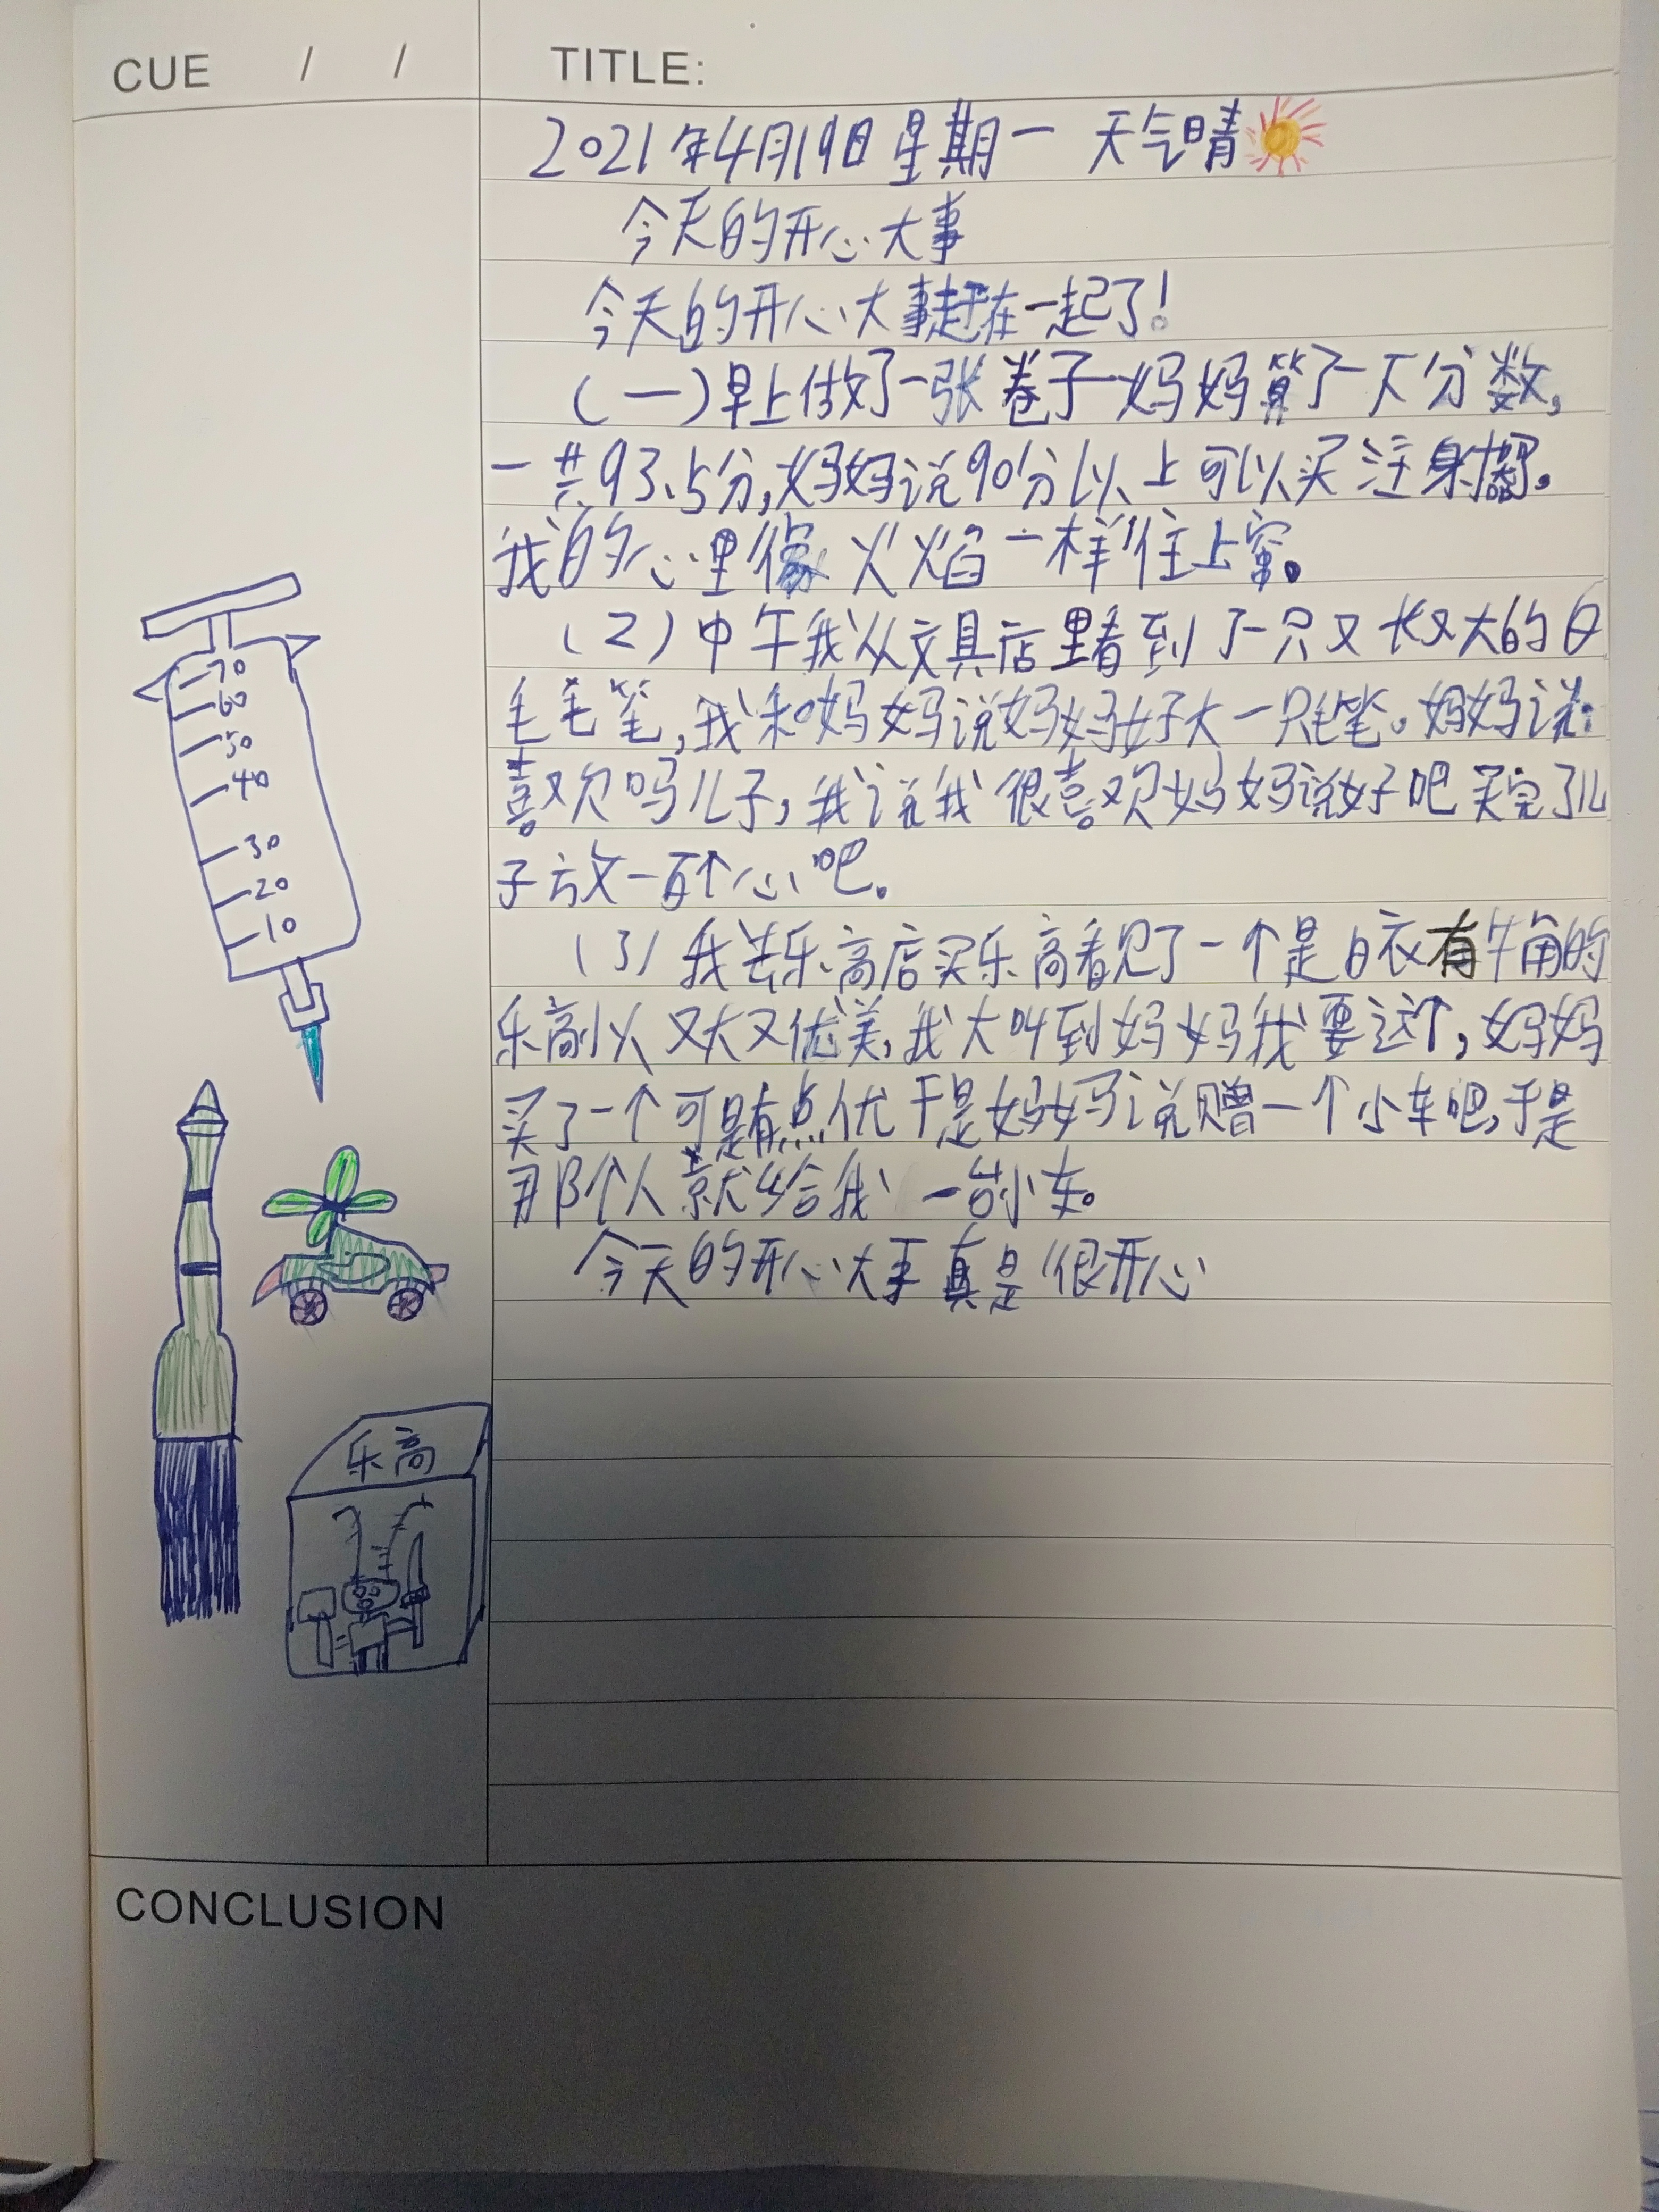 CUE / /
TITLE:
2021年4月19日星期一 天气晴
今天的开心大事
今天的开心大事赶在一起了!
(一)早上做了一张卷子妈妈算了一下分数,
一共93.5分,妈妈说90分以上可以买注射器。
我的心里像火焰一样往上窜。
(2)中午我从文具店里看到了一只又长又大的白
毛毛笔,我和妈妈说妈妈好大一只毛笔。妈妈说:
喜欢吗儿子,我说我很喜欢妈妈说好吧买完了儿
子放一百个心吧。
(3)我去乐高店买乐高看见了一个是白衣有牛角的
乐高人又大又优美,我大叫到妈妈我要这个,妈妈
买了一个可是有点优于是妈妈说赠一个小车吧,于是
那个人就给我一台小车。
今天的开心大事真是很开心
70
60
50
40
30
20
10
乐高
CONCLUSION